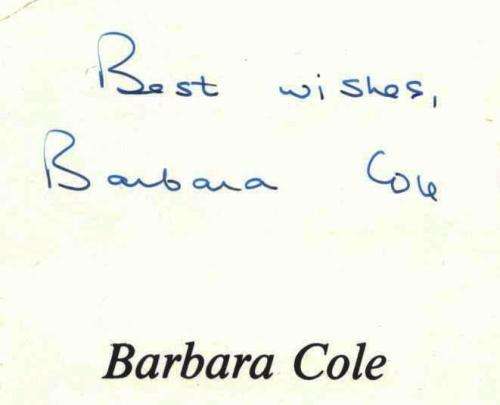 Best wishes,
Barbara Cole
Barbara Cole